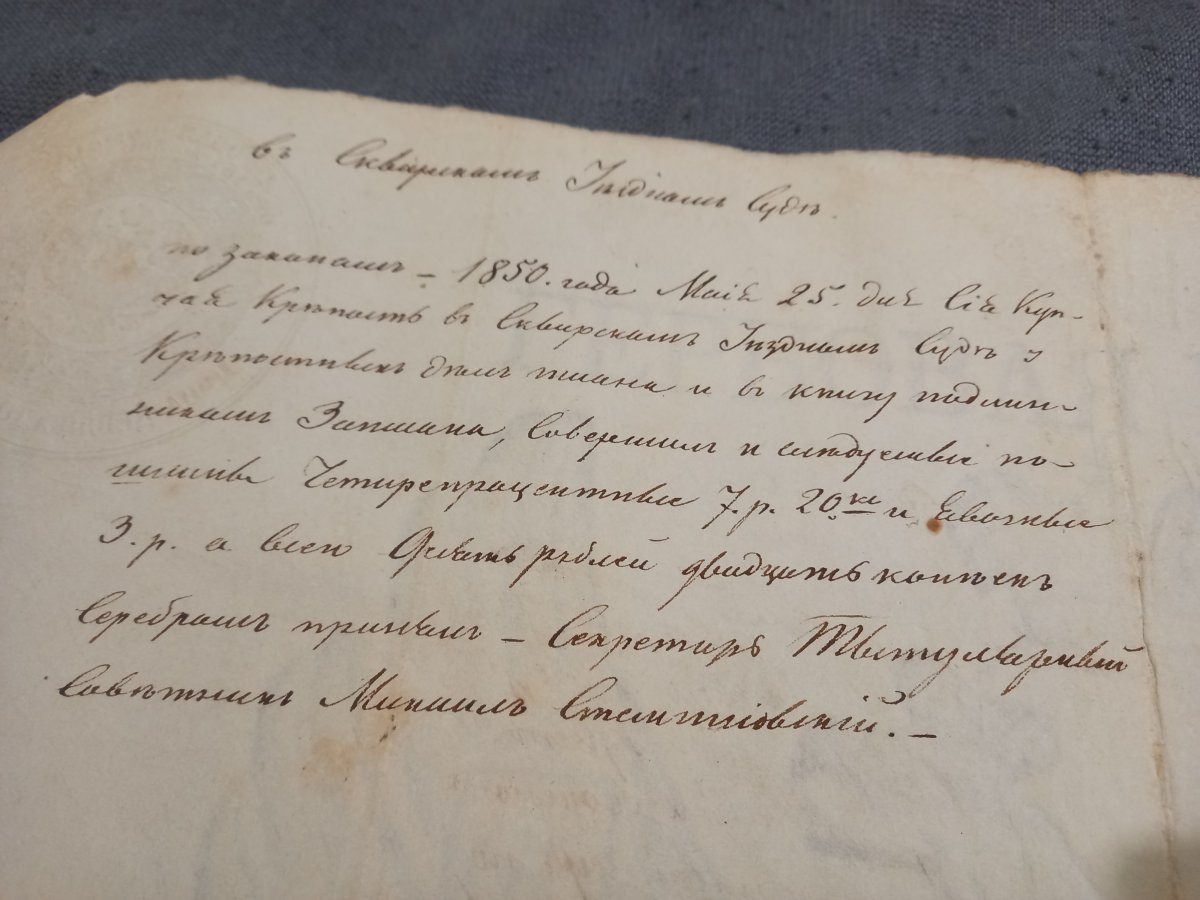 въ Сквирскомъ Уѣздномъ Судѣ.
по законамъ – 1850. года Маія 25. дня Сія Куп-
чая Крѣпость въ Сквирскомъ Уѣздномъ Судѣ у
Крѣпостныхъ дѣлъ писана и въ книгу подлин-
никомъ Записана, Совершилъ и слѣдуемыя по-
шлины Четирепроцентные 7. р. 20. ко и Явочные
3. р. а всего Десять рублей двадцать копѣекъ
Серебромъ принялъ – Секретарь Титулярный
Совѣтникъ Михаилъ